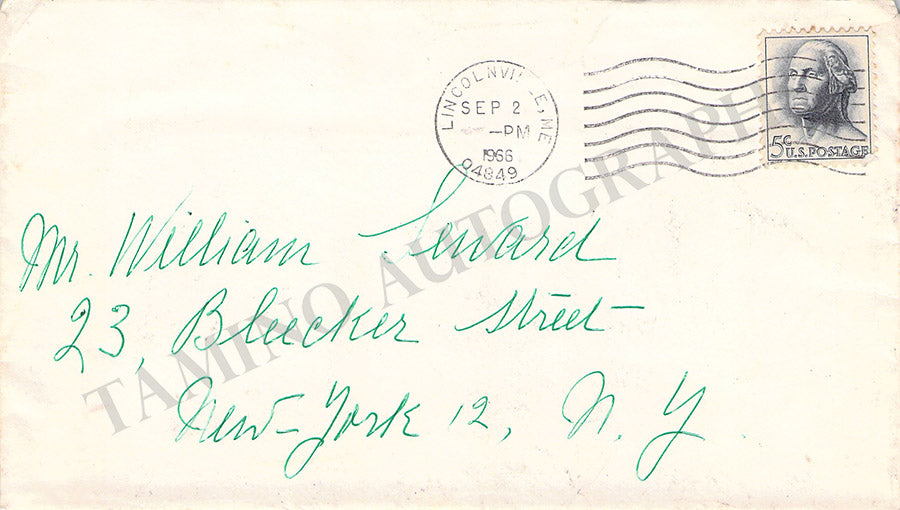 LINCOLNVILLE, ME
SEP 2
-PM
1966
04849
5c
U.S. POSTAGE
Mr. William Seward
23, Bleecker Street
New-York 12, N. Y.
TAMINO AUTOGRAPHS